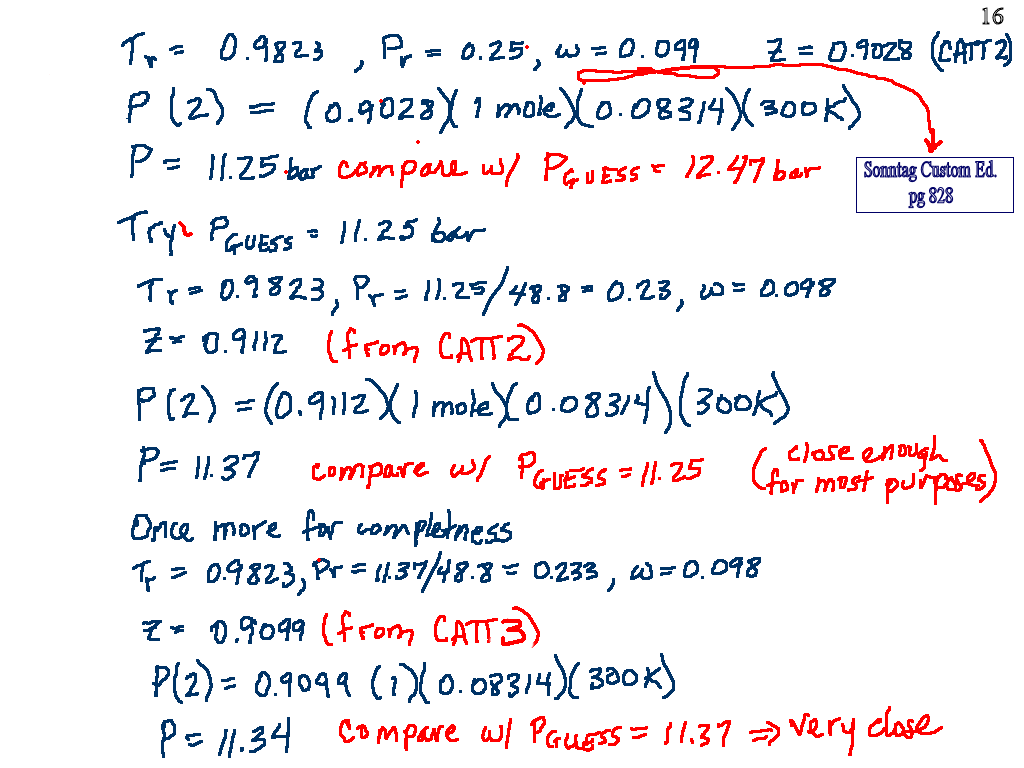 16
Tr = 0.9823, Pr = 0.25, w = 0.099 Z = 0.9028 (CATT2)
P (2) = (0.9028)(1 mole)(0.08314)(300K)
P = 11.25 bar compare w/ PGUESS = 12.47 bar
Sonntag Custom Ed.
pg 828
Try PGUESS = 11.25 bar
Tr = 0.9823, Pr = 11.25/48.8 = 0.23, w = 0.098
Z = 0.9112 (from CATT2)
P(2) = (0.9112)(1 mole)(0.08314)(300K)
P = 11.37 compare w/ PGUESS = 11.25 (close enough
for most purposes)
Once more for completness
Tr = 0.9823, Pr = 11.37/48.8 = 0.233, w = 0.098
Z = 0.9099 (from CATT3)
P(2) = 0.9099 (1)(0.08314)(300K)
P = 11.34 compare w/ PGUESS = 11.37 ⇒ very close